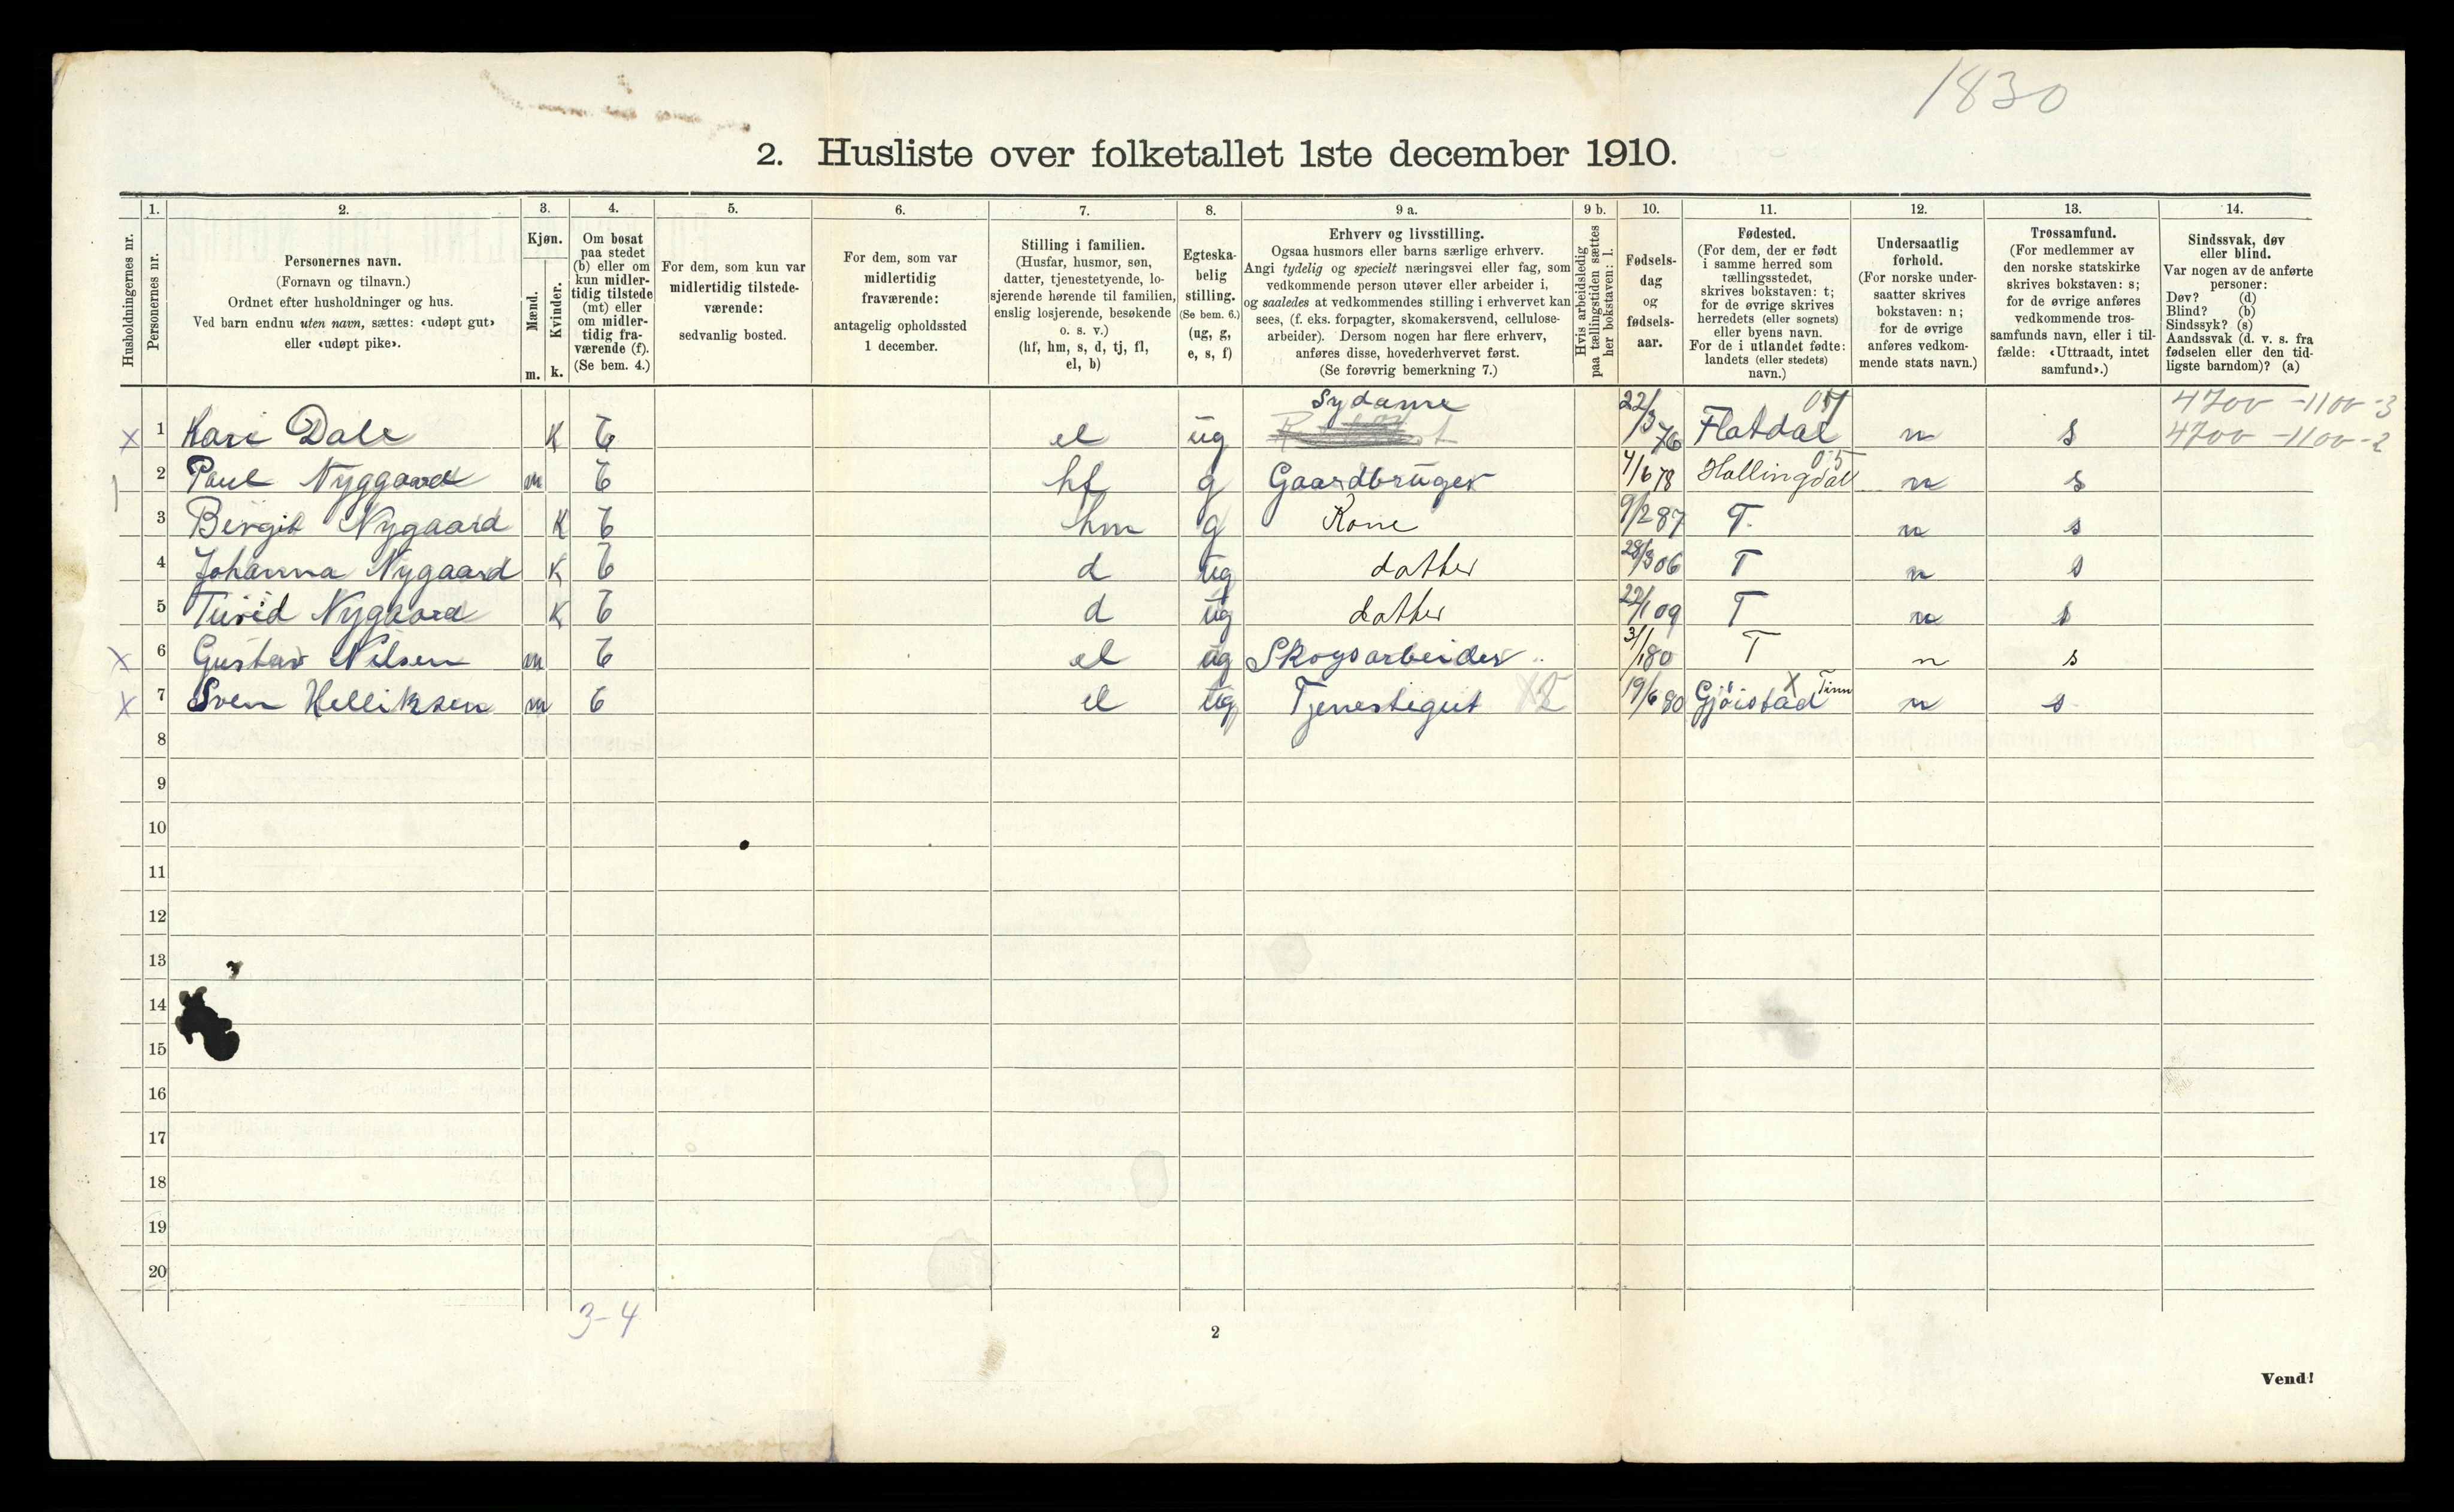 1830
2. Husliste over folketallet 1ste december 1910.
1. 2. 3. 4. 5. 6. 7. 8. 9 a. 9 b. 10. 11. 12. 13. 14.
Husholdningernes nr.
Personernes nr.
Personernes navn.
(Fornavn og tilnavn.)
Ordnet efter husholdninger og hus.
Ved barn endnu uten navn, sættes: «udøpt gut»
eller «udøpt pike».
Kjøn.
Mænd.
Kvinder.
m. k.
Om bosat
paa stedet
(b) eller om
kun midler-
tidig tilstede
(mt) eller
om midler-
tidig fra-
værende (f).
(Se bem. 4.)
For dem, som kun var
midlertidig tilstede-
værende:
sedvanlig bosted.
For dem, som var
midlertidig
fraværende:
antagelig opholdssted
1 december.
Stilling i familien.
(Husfar, husmor, søn,
datter, tjenestetyende, lo-
sjerende hørende til familien,
enslig losjerende, besøkende
o. s. v.)
(hf, hm, s, d, tj, fl,
el, b)
Egteska-
belig
stilling.
(Se bem. 6.)
(ug, g,
e, s, f)
Erhverv og livsstilling.
Ogsaa husmors eller barns særlige erhverv.
Angi tydelig og specielt næringsvei eller fag, som
vedkommende person utøver eller arbeider i,
og saaledes at vedkommendes stilling i erhvervet kan
sees, (f. eks. forpagter, skomakersvend, cellulose-
arbeider). Dersom nogen har flere erhverv,
anføres disse, hovederhvervet først.
(Se forøvrig bemerkning 7.)
Hvis arbeidsledig
paa tællingstiden sættes
her bokstaven: l.
Fødsels-
dag
og
fødsels-
aar.
Fødested.
(For dem, der er født
i samme herred som
tællingsstedet,
skrives bokstaven: t;
for de øvrige skrives
herredets (eller sognets)
eller byens navn.
For de i utlandet fødte:
landets (eller stedets)
navn.)
Undersaatlig
forhold.
(For norske under-
saatter skrives
bokstaven: n;
for de øvrige
anføres vedkom-
mende stats navn.)
Trossamfund.
(For medlemmer av
den norske statskirke
skrives bokstaven: s;
for de øvrige anføres
vedkommende tros-
samfunds navn, eller i til-
fælde: «Uttraadt, intet
samfund».)
Sindssvak, døv
eller blind.
Var nogen av de anførte
personer:
Døv? (d)
Blind? (b)
Sindssyk? (s)
Aandssvak (d. v. s. fra
fødselen eller den tid-
ligste barndom)? (a)
Sydame 4700 -1100-3
x 1 Kari Dale K b el ug 22/3 76 Flatdal n s 4700 -1100-2
1 2 Paul Nyggaard m b hf g Gaardbruger 4/6 78 Hallingdal 05 n s
3 Bergit Nygaard K b hm g Kone 9/2 87 T. n s
4 Johanna Nygaard K b d ug datter 28/3 06 T n s
5 Turid Nygaard K b d ug datter 22/1 09 T n s
x 6 Gustav Nilsen m b el ug Skogsarbeider 3/1 80 T n s
x 7 Sven Helliksen m b el ug Tjenestegut 19/6 80 Gjöistad x Tinn n s
8
9
10
11
12
13
14
15
16
17
18
19
20
3-4
2
Vend!